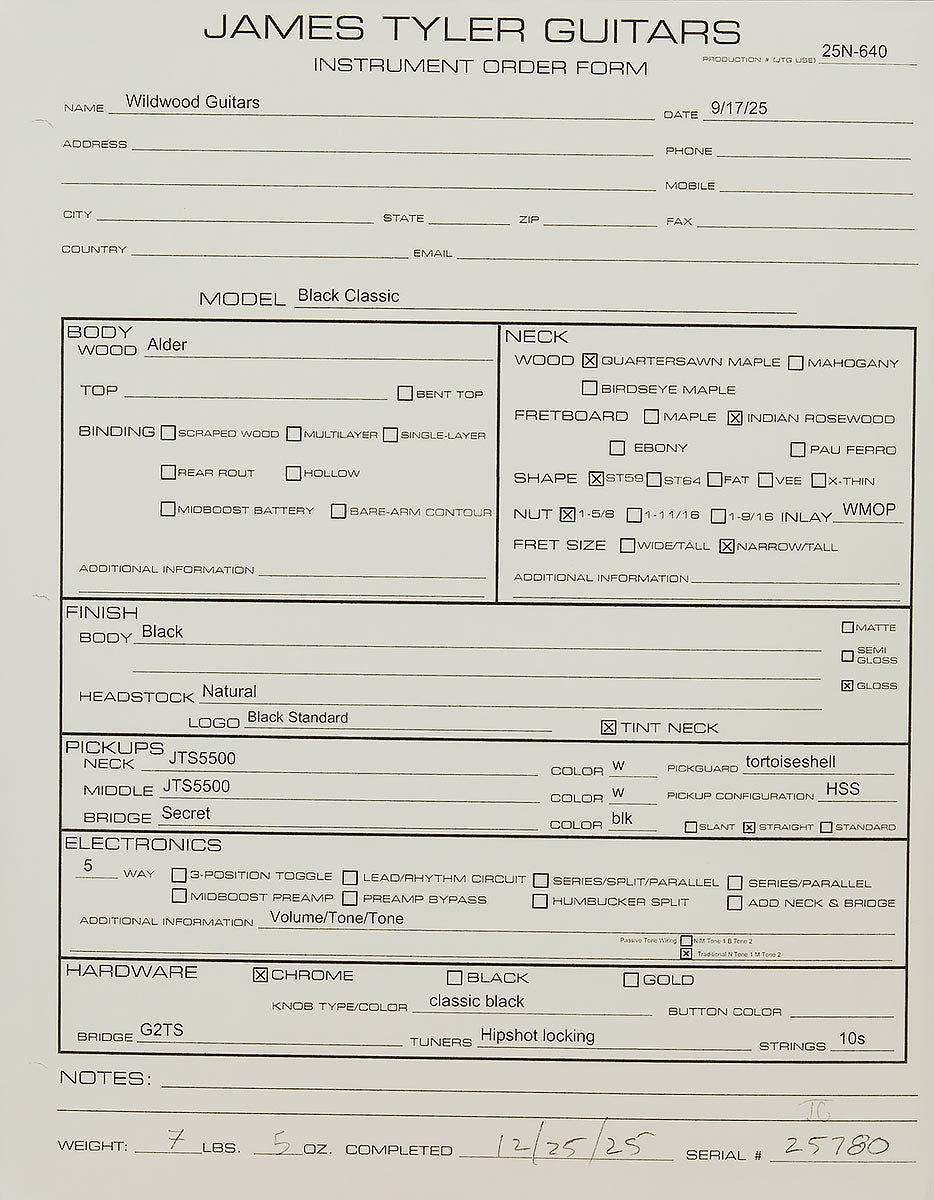 JAMES TYLER GUITARS
INSTRUMENT ORDER FORM
PRODUCTION # (JTG USE) 25N-640
NAME Wildwood Guitars DATE 9/17/25
ADDRESS PHONE
MOBILE
CITY STATE ZIP FAX
COUNTRY EMAIL
MODEL Black Classic
BODY
WOOD Alder
TOP ☐ BENT TOP
BINDING ☐ SCRAPED WOOD ☐ MULTILAYER ☐ SINGLE-LAYER
☐ REAR ROUT ☐ HOLLOW
☐ MIDBOOST BATTERY ☐ BARE-ARM CONTOUR
ADDITIONAL INFORMATION
NECK
WOOD ☒ QUARTERSAWN MAPLE ☐ MAHOGANY
☐ BIRDSEYE MAPLE
FRETBOARD ☐ MAPLE ☒ INDIAN ROSEWOOD
☐ EBONY ☐ PAU FERRO
SHAPE ☒ ST59 ☐ ST64 ☐ FAT ☐ VEE ☐ X-THIN
NUT ☒ 1-5/8 ☐ 1-11/16 ☐ 1-9/16 INLAY WMOP
FRET SIZE ☐ WIDE/TALL ☒ NARROW/TALL
ADDITIONAL INFORMATION
FINISH
BODY Black ☐ MATTE
☐ SEMI GLOSS
☒ GLOSS
HEADSTOCK Natural
LOGO Black Standard ☒ TINT NECK
PICKUPS
NECK JTS5500 COLOR W PICKGUARD tortoiseshell
MIDDLE JTS5500 COLOR W PICKUP CONFIGURATION HSS
BRIDGE Secret COLOR blk ☐ SLANT ☒ STRAIGHT ☐ STANDARD
ELECTRONICS
5 WAY ☐ 3-POSITION TOGGLE ☐ LEAD/RHYTHM CIRCUIT ☐ SERIES/SPLIT/PARALLEL ☐ SERIES/PARALLEL
☐ MIDBOOST PREAMP ☐ PREAMP BYPASS ☐ HUMBUCKER SPLIT ☐ ADD NECK & BRIDGE
ADDITIONAL INFORMATION Volume/Tone/Tone
Passive Tone Wiring ☐ N/M Tone 1 B Tone 2
☒ Traditional N Tone 1 M Tone 2
HARDWARE ☒ CHROME ☐ BLACK ☐ GOLD
KNOB TYPE/COLOR classic black BUTTON COLOR
BRIDGE G2TS TUNERS Hipshot locking STRINGS 10s
NOTES:
TG
WEIGHT: 7 LBS. 5 OZ. COMPLETED 12/25/25 SERIAL # 25780